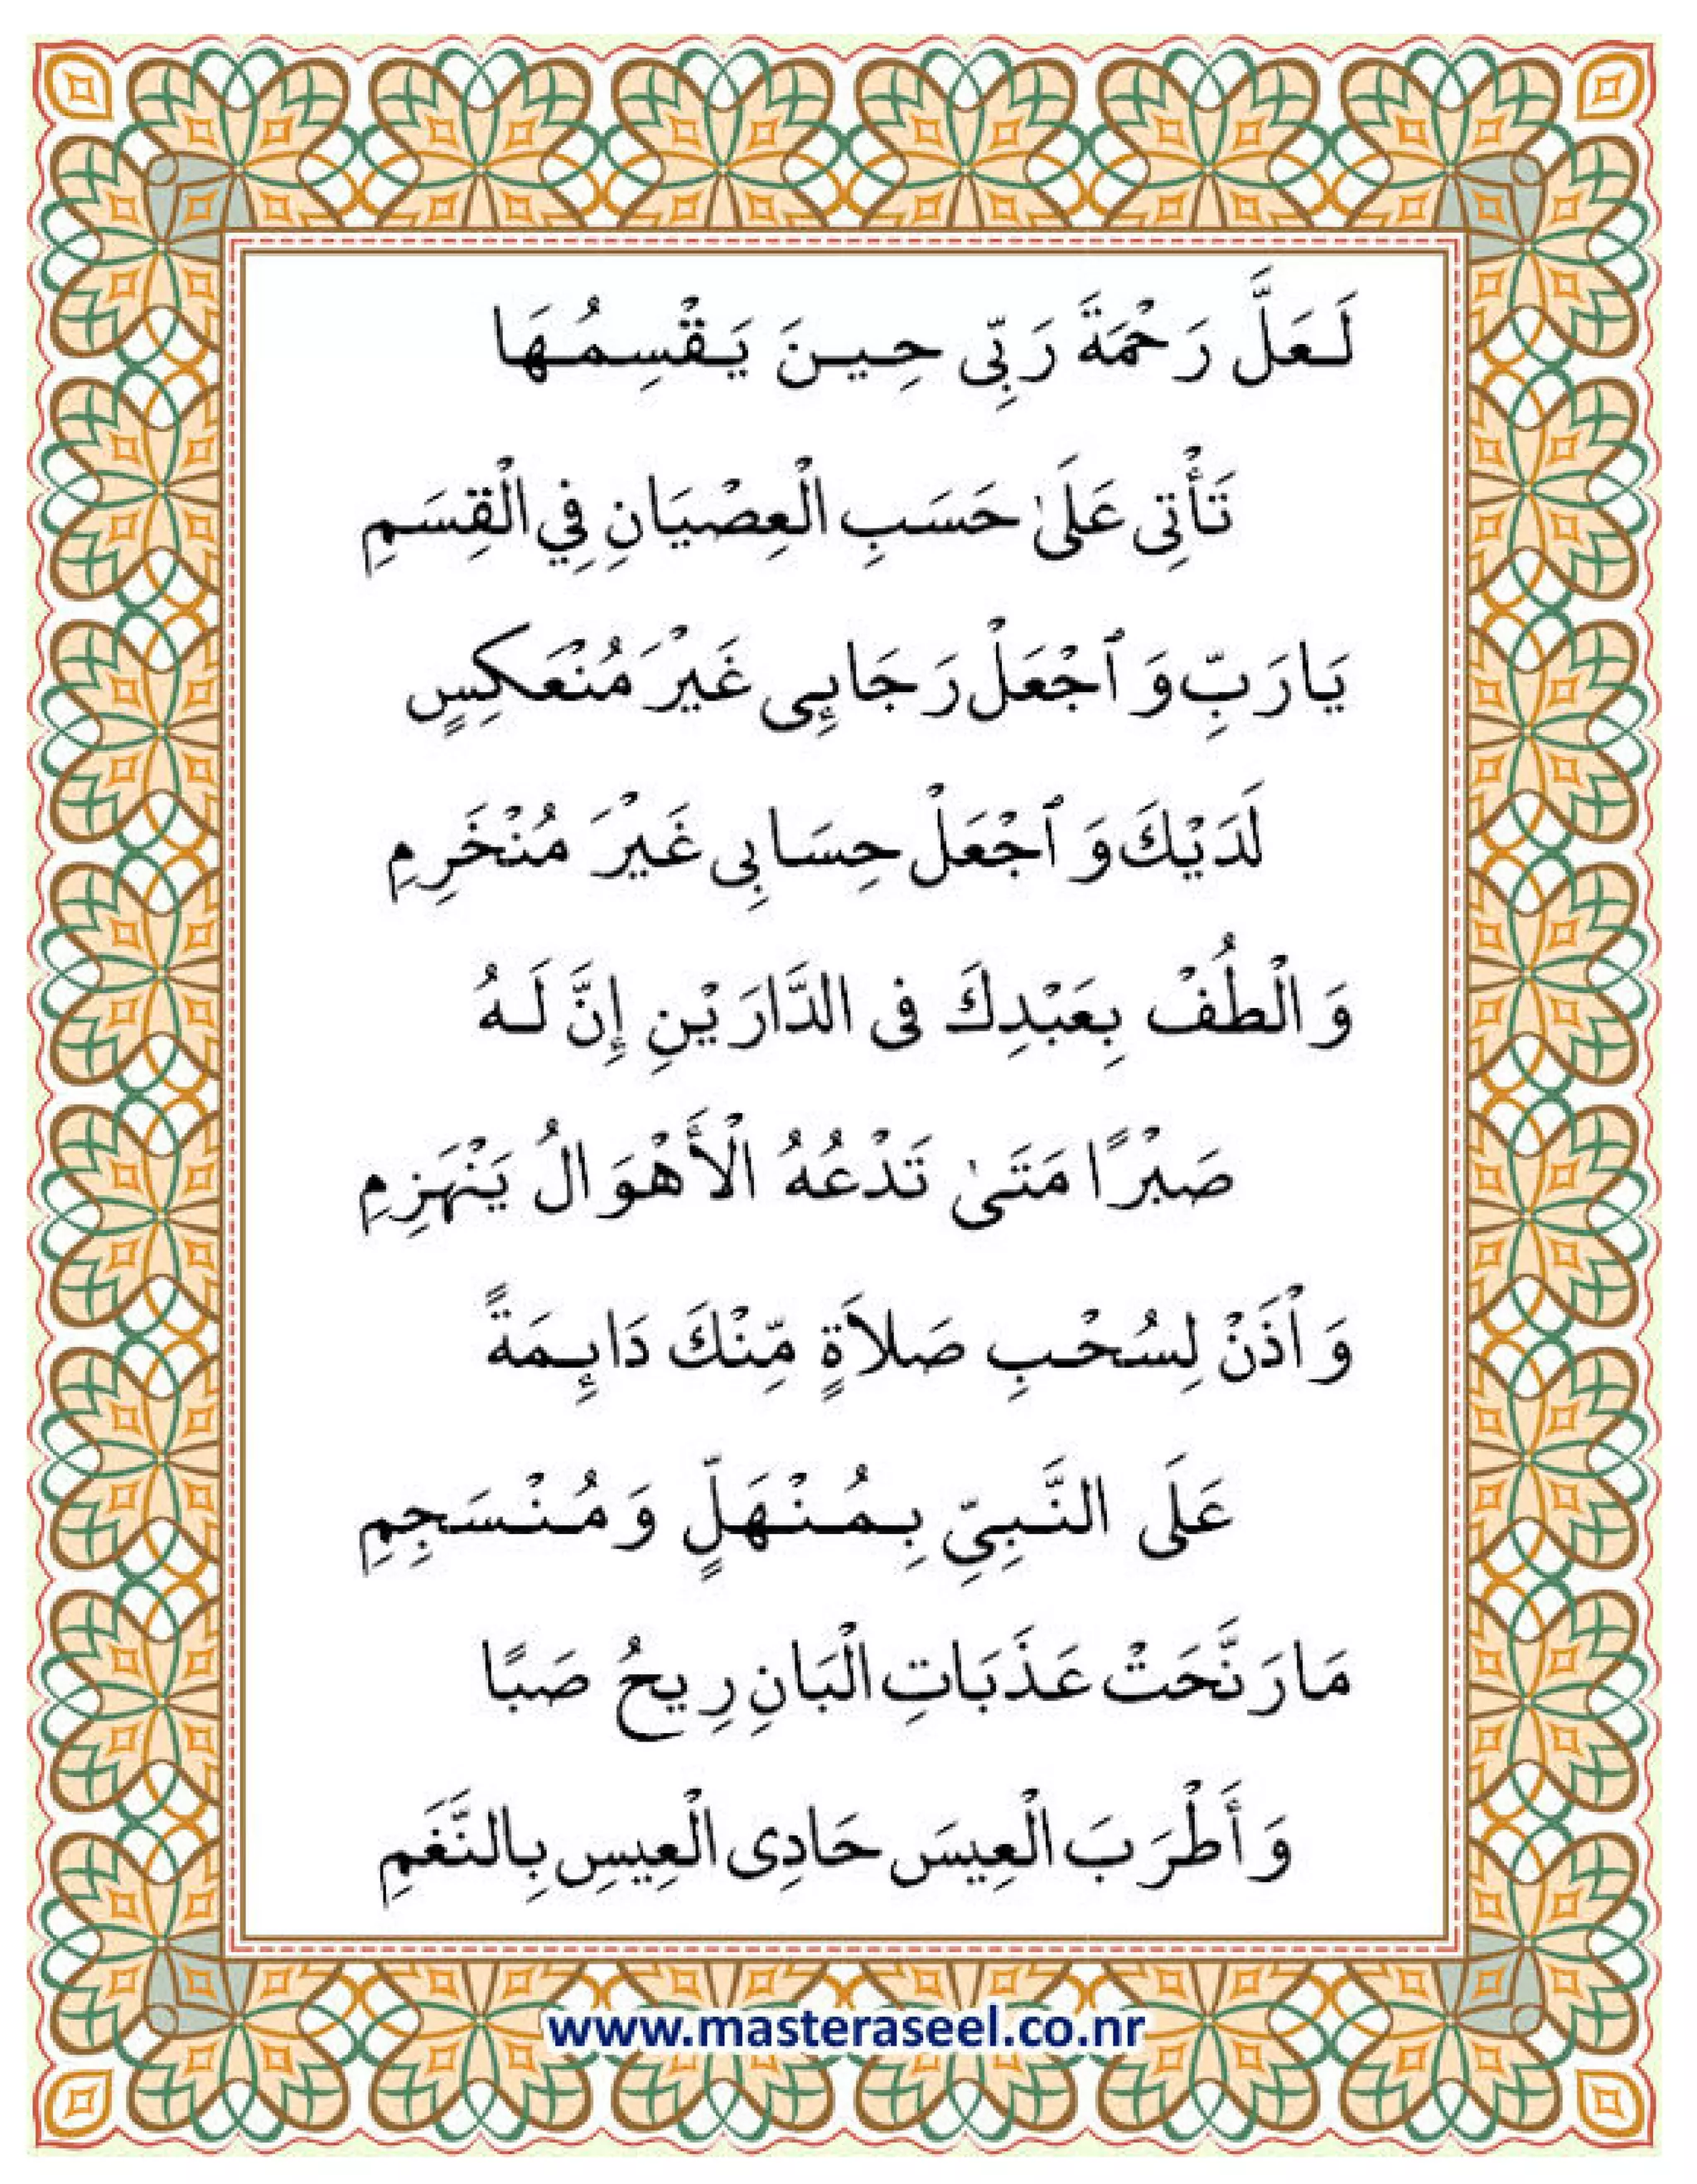 لَعَلَّ رَحْمَةَ رَبِّى حِينَ يَقْسِمُهَا
تَأْتِى عَلَىٰ حَسَبِ الْعِصْيَانِ فِي الْقِسَمِ
يَارَبِّ وَٱجْعَلْ رَجَائِى غَيْرَ مُنْعَكِسٍ
لَدَيْكَ وَٱجْعَلْ حِسَابِى غَيْرَ مُنْخَرِمِ
وَالْطُفْ بِعَبْدِكَ فِى الدَّارَيْنِ إِنَّ لَهُ
صَبْرًا مَتَىٰ تَدْعُهُ الْأَهْوَالُ يَنْهَزِمِ
وَاْذَنْ لِسُحْبِ صَلاَةٍ مِّنْكَ دَائِمَةً
عَلَى النَّبِىِّ بِمُنْهَلٍّ وَمُنْسَجِمِ
مَارَنَّحَتْ عَذَبَاتِ الْبَانِ رِيحُ صَبًا
وَأَطْرَبَ الْعِيسَ حَادِى الْعِيسِ بِالنَّغَمِ
www.masteraseel.co.nr